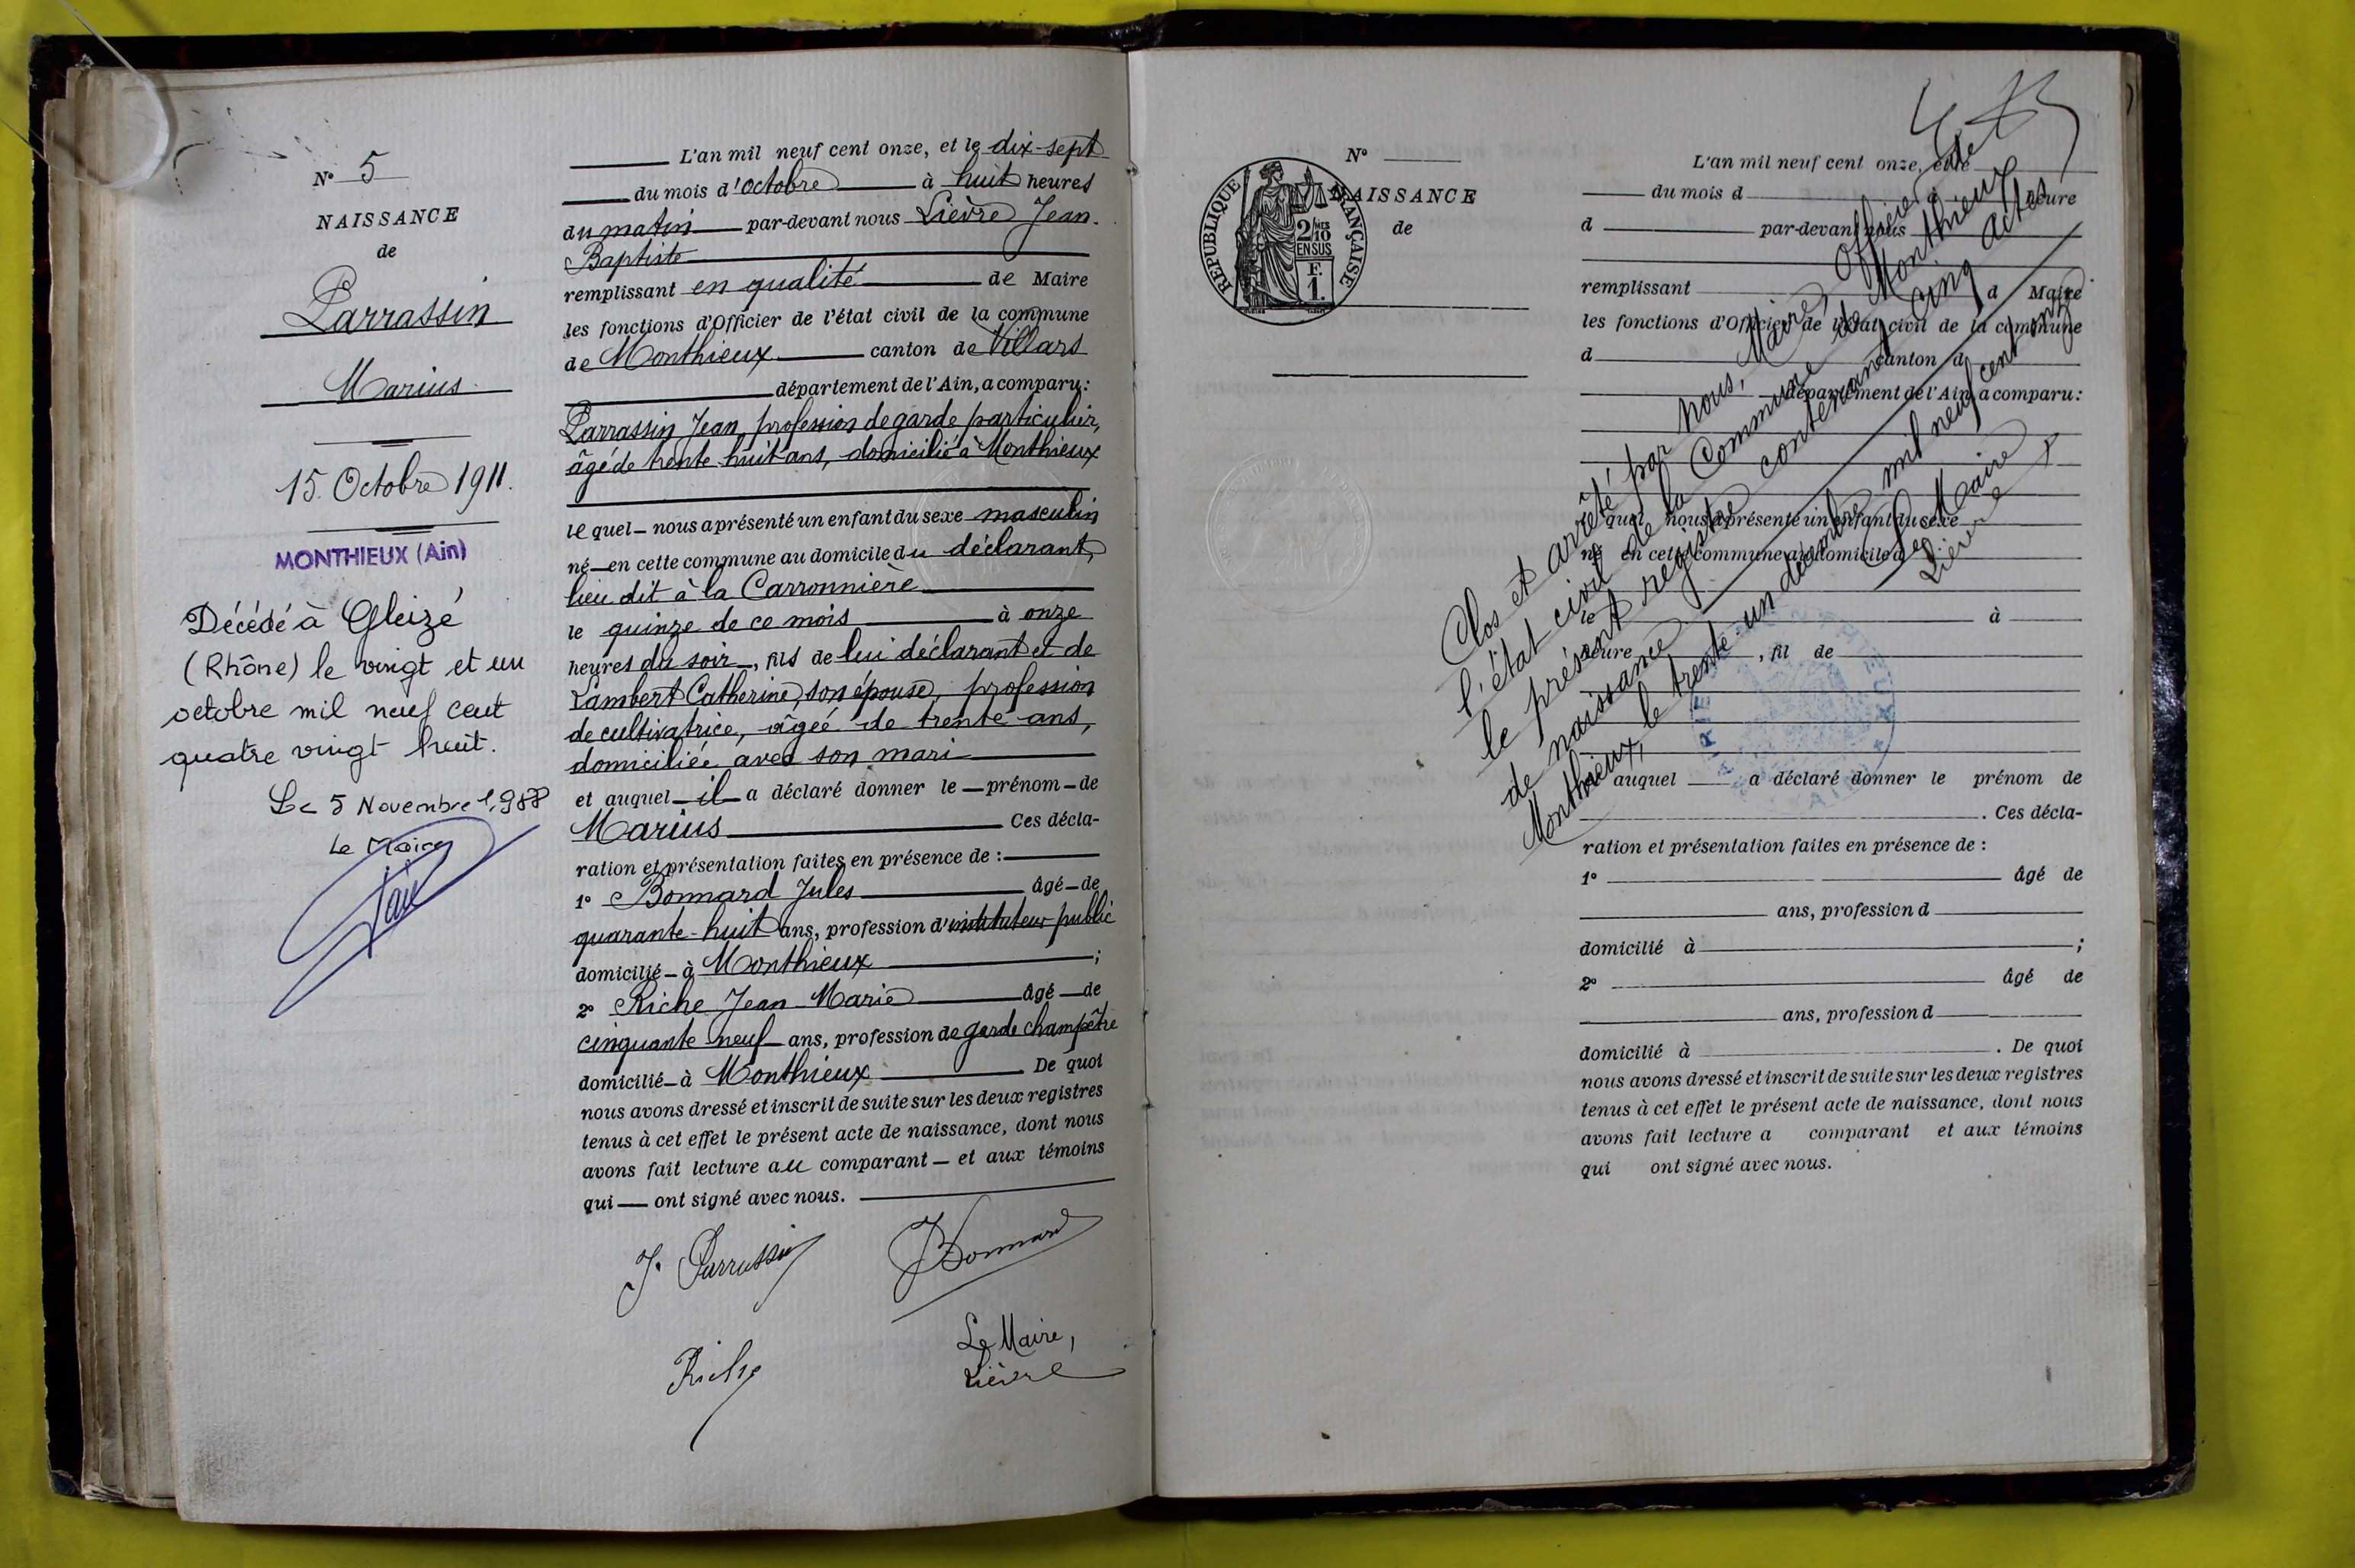 N° 5
NAISSANCE
de
Parrassin
Marius
15 Octobre 1911.
MONTHIEUX (Ain)
Décédé à Gleizé
(Rhône) le vingt et un
octobre mil neuf cent
quatre vingt huit.
Le 5 Novembre 1988
Le Maire
L'an mil neuf cent onze, et le dix-sept
du mois d'octobre à huit heures
du matin par-devant nous Lièvre Jean-
Baptiste
remplissant en qualité de Maire
les fonctions d'Officier de l'état civil de la commune
de Monthieux canton de Villars
département de l'Ain, a comparu:
Parrassin Jean, profession de garde particulier,
âgé de trente-huit ans, domicilié à Monthieux
lequel nous a présenté un enfant du sexe masculin
né en cette commune au domicile du déclarant,
lieu dit à la Carronnière
le quinze de ce mois à onze
heures du soir, fils de lui déclarant et de
Lambert Catherine, son épouse, profession
de cultivatrice, âgée de trente ans,
domiciliée avec son mari
et auquel il a déclaré donner le prénom de
Marius Ces décla-
ration et présentation faites en présence de :
1° Bonnard Jules âgé de
quarante-huit ans, profession d'instituteur public
domicilié à Monthieux ;
2° Riche Jean-Marie âgé de
cinquante neuf ans, profession de garde champêtre
domicilié à Monthieux De quoi
nous avons dressé et inscrit de suite sur les deux registres
tenus à cet effet le présent acte de naissance, dont nous
avons fait lecture au comparant et aux témoins
qui ont signé avec nous.
J. Parrassin
JBonnard
Riche
Le Maire,
Lièvre
N°
NAISSANCE
de
REPUBLIQUE FRANÇAISE
2/10
EN SUS
F.
1.
L'an mil neuf cent onze, et le
du mois d à heure
d par-devant nous
remplissant d Maire
les fonctions d'Officier de l'état civil de la commune
d canton d
département de l'Ain, a comparu:
quel nous a présenté un enfant du sexe
né en cette commune au domicile d
le à
heure , fil de
auquel a déclaré donner le prénom de
. Ces décla-
ration et présentation faites en présence de :
1° âgé de
ans, profession d
domicilié à ;
2° âgé de
ans, profession d
domicilié à . De quoi
nous avons dressé et inscrit de suite sur les deux registres
tenus à cet effet le présent acte de naissance, dont nous
avons fait lecture a comparant et aux témoins
qui ont signé avec nous.
Clos et arrêté par nous, Maire, Officier de
l'état civil de la Commune de Monthieux
le présent registre contenant cinq actes
de naissance
Monthieux, le trente-un décembre mil neuf cent onze
Le Maire
Lièvre